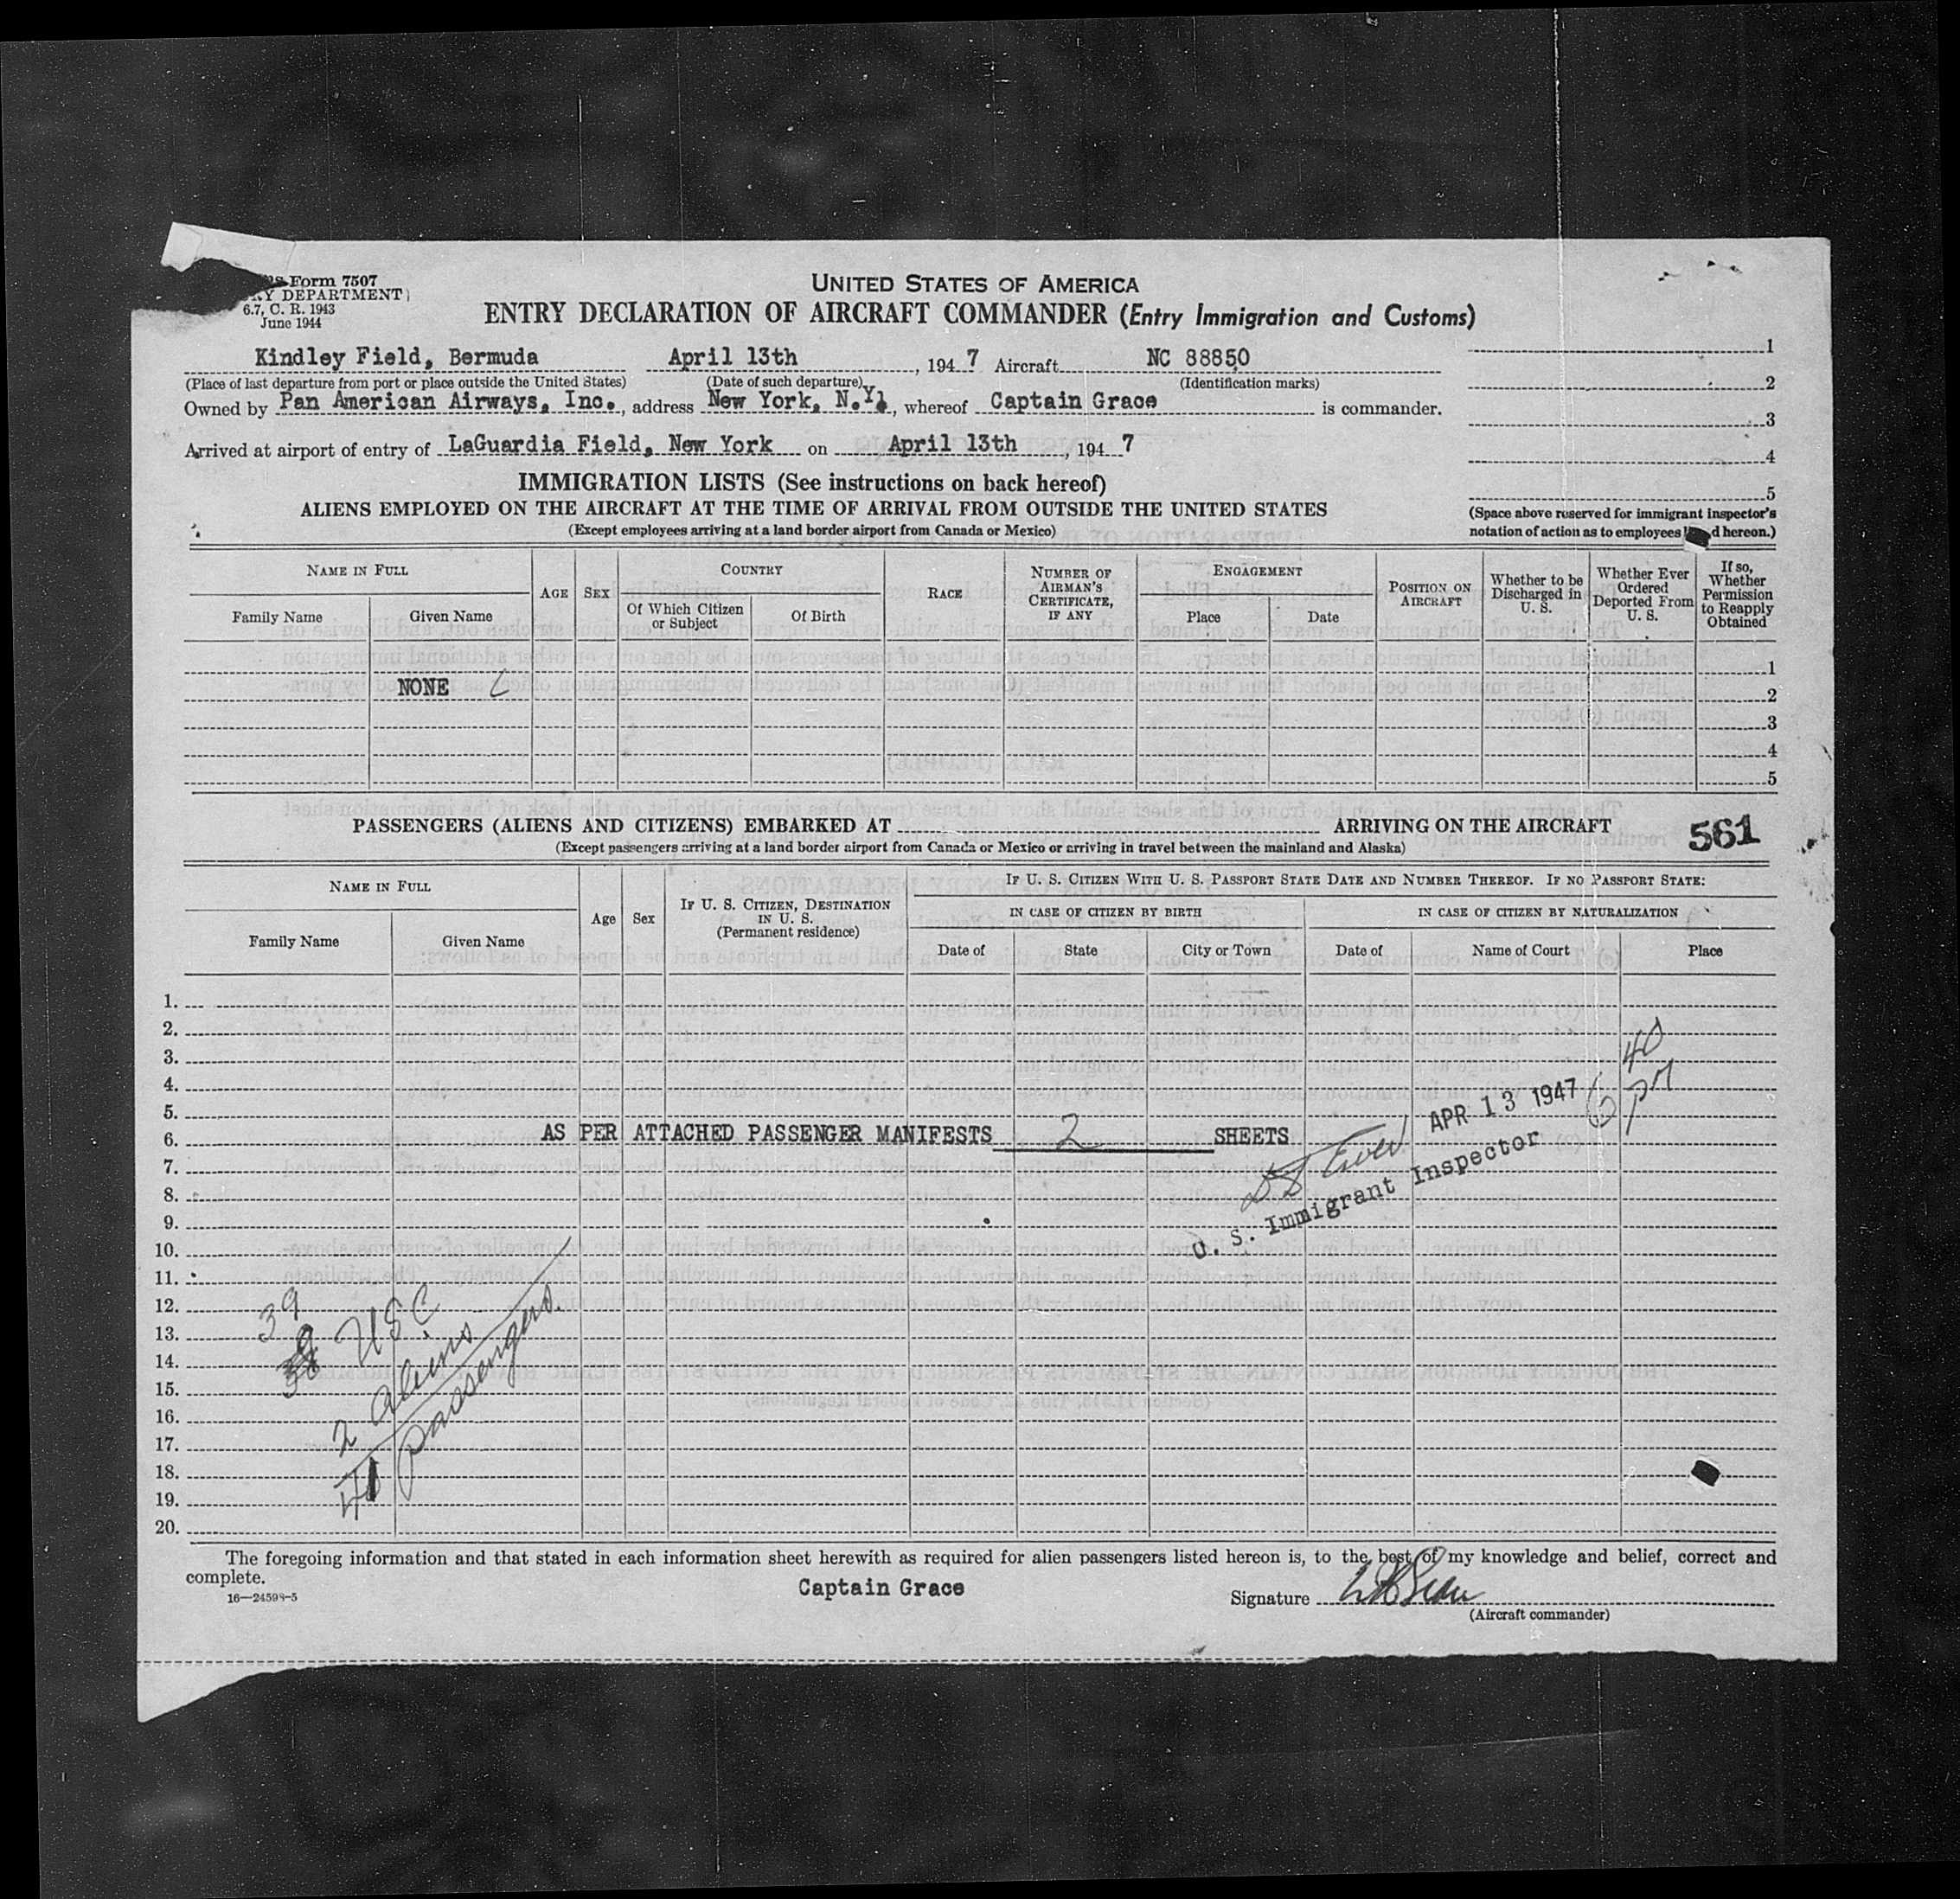 Form 7507
UNITED STATES OF AMERICA
Y DEPARTMENT)
6.7, C. R. 1943
June 1944
ENTRY DECLARATION OF AIRCRAFT COMMANDER (Entry Immigration and Customs)
Kindley Field, Bermuda April 13th, 194 7 Aircraft NC 88850
(Place of last departure from port or place outside the United States) (Date of such departure) (Identification marks)
Owned by Pan American Airways, Inc., address New York, N.Y., whereof Captain Grace is commander.
Arrived at airport of entry of LaGuardia Field, New York on April 13th, 194 7
1
2
3
4
5
(Space above reserved for immigrant inspector's
notation of action as to employees d hereon.)
IMMIGRATION LISTS (See instructions on back hereof)
ALIENS EMPLOYED ON THE AIRCRAFT AT THE TIME OF ARRIVAL FROM OUTSIDE THE UNITED STATES
(Except employees arriving at a land border airport from Canada or Mexico)
NAME IN FULL
Family Name
Given Name
AGE
SEX
COUNTRY
Of Which Citizen
or Subject
Of Birth
RACE
NUMBER OF
AIRMAN'S
CERTIFICATE,
IF ANY
ENGAGEMENT
Place
Date
POSITION ON
AIRCRAFT
Whether to be
Discharged in
U. S.
Whether Ever
Ordered
Deported From
U. S.
If so,
Whether
Permission
to Reapply
Obtained
1
NONE 2
3
4
5
PASSENGERS (ALIENS AND CITIZENS) EMBARKED AT ARRIVING ON THE AIRCRAFT
561
(Except passengers arriving at a land border airport from Canada or Mexico or arriving in travel between the mainland and Alaska)
NAME IN FULL
Family Name
Given Name
Age
Sex
IF U. S. CITIZEN, DESTINATION
IN U. S.
(Permanent residence)
IF U. S. CITIZEN WITH U. S. PASSPORT STATE DATE AND NUMBER THEREOF. IF NO PASSPORT STATE:
IN CASE OF CITIZEN BY BIRTH
IN CASE OF CITIZEN BY NATURALIZATION
Date of
State
City or Town
Date of
Name of Court
Place
1.
2.
3.
4.
5.
6. AS PER ATTACHED PASSENGER MANIFESTS 2 SHEETS
7.
8.
9.
10.
11.
12.
13.
14.
15.
16.
17.
18.
19.
20.
APR 13 1947
6 40 PM
U. S. Immigrant Inspector
39 USC
2 aliens
41 passengers.
The foregoing information and that stated in each information sheet herewith as required for alien passengers listed hereon is, to the best of my knowledge and belief, correct and
complete.
16—24598-5
Captain Grace
Signature
(Aircraft commander)